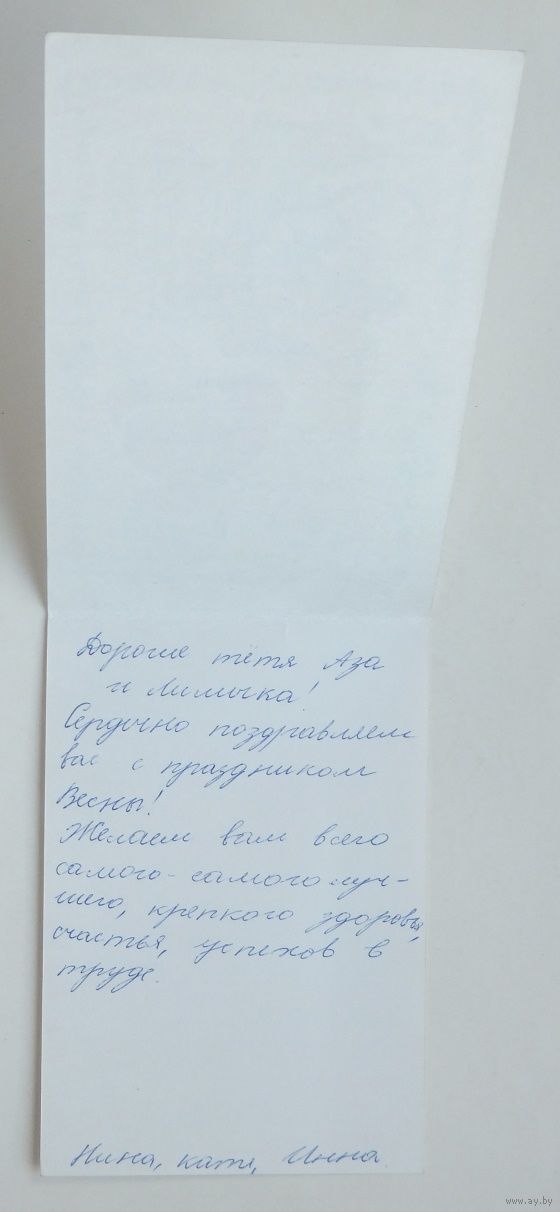 Дорогие тётя Аза
и Лимочка!
Сердечно поздравляем
вас с праздником
Весны!
Желаем вам всего
самого-самого луч-
шего, крепкого здоровья,
счастья, успехов в
труде.
Нина, Катя, Инна.
www.ay.by